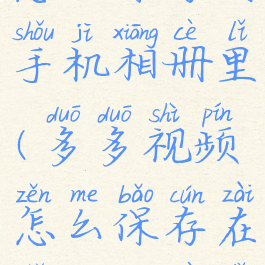 shǒu jī xiāng cè lǐ
手机相册里
duō duō shì pín
(多多视频
zěn me bǎo cún zài
怎么保存在